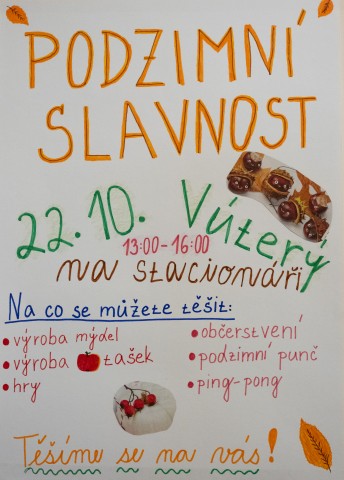 PODZIMNÍ
SLAVNOST
22.10. Vúterý
13:00-16:00
na stacionáři
Na co se můžete těšit:
• výroba mýdel
• výroba tašek
• hry
• občerstvení
• podzimní punč
• ping-pong
Těšíme se na vás!